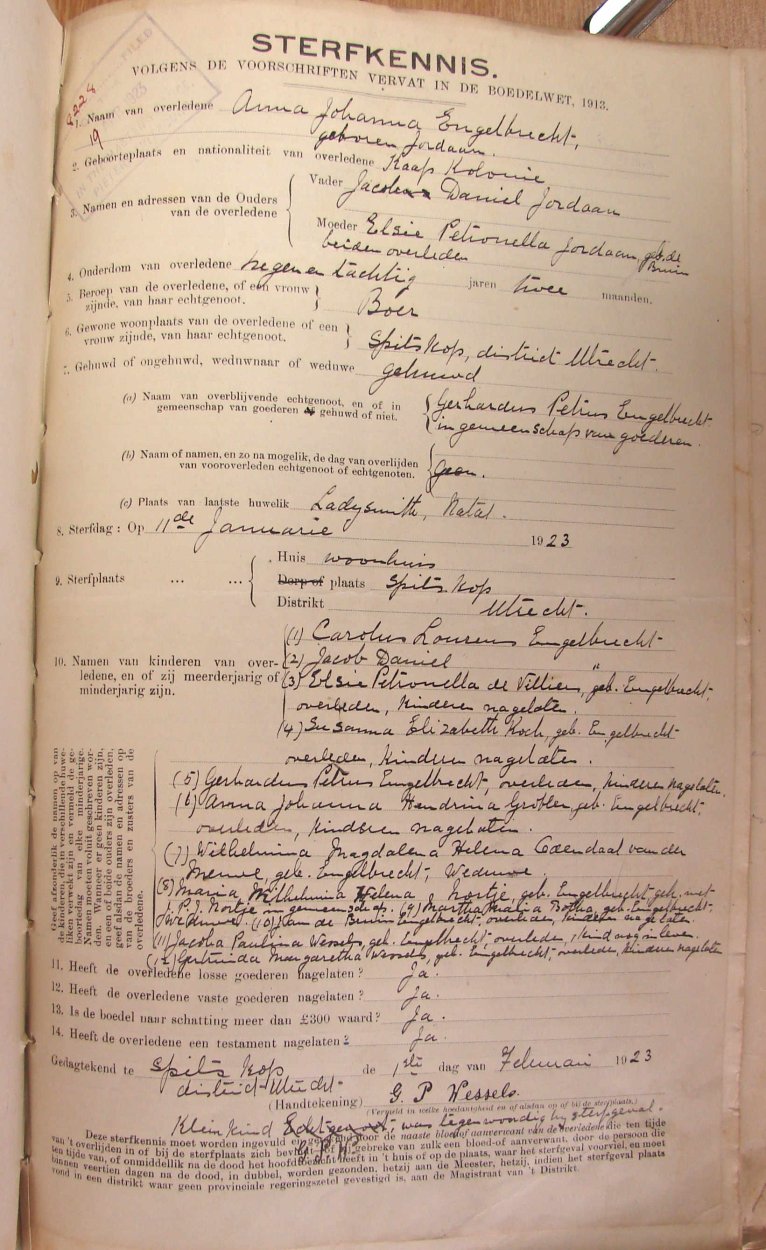 STERFKENNIS.
VOLGENS DE VOORSCHRIFTEN VERVAT IN DE BOEDELWET, 1913.
FILED
1. Naam van overledene Anna Johanna Engelbrecht,
geboren Jordaan.
2. Geboorteplaats en nationaliteit van overledene Kaap Kolonie
3. Namen en adressen van de Ouders van de overledene
Vader Jacobus Daniel Jordaan
Moeder Elsie Petronella Jordaan, geb. de Bruin
beiden overleden
4. Onderdom van overledene negen en tachtig jaren twee maanden.
5. Beroep van de overledene, of een vrouw
zijnde, van haar echtgenoot. Boer
6. Gewone woonplaats van de overledene of een
vrouw zijnde, van haar echtgenoot. Spits Kop, district Utrecht.
7. Gehuwd of ongehuwd, weduwnaar of weduwe gehuwd
(a) Naam van overblijvende echtgenoot, en of in
gemeenschap van goederen gehuwd of niet.
Gerhardus Petrus Engelbrecht
in gemeenschap van goederen.
(b) Naam of namen, en zo na mogelik, de dag van overlijden
van vooroverleden echtgenoot of echtgenoten. Geen.
(c) Plaats van laatste huwelik Ladysmith, Natal.
8. Sterfdag: Op 11de Januarie 1923
9. Sterfplaats ... ...
Huis woonhuis
Dorp of plaats Spits Kop
Distrikt Utrecht.
10. Namen van kinderen van over-
ledene, en of zij meerderjarig of
minderjarig zijn.
(1) Carolus Lourens Engelbrecht
(2) Jacob Daniel "
(3) Elsie Petronella de Villiers, geb. Engelbrecht,
overleden, kinderen nagelaten.
(4) Susanna Elizabeth Koch, geb. Engelbrecht
overleden, kinderen nagelaten.
Geef afzonderlik de namen op van
de kinderen, die in verschillende huwe-
liken verwekt zijn en vermeld de ge-
boortedag van elke minderjarige.
Namen moeten voluit geschreven wor-
den. Wanneer er geen kinderen zijn,
en een of beide ouders zijn overleden,
geef alsdan de namen en adressen op
van de broeders en zusters van de
overledene.
(5) Gerhardus Petrus Engelbrecht, overleden, kinderen nagelaten.
(6) Anna Johanna Hendrina Grobler, geb. Engelbrecht,
overleden, kinderen nagelaten.
(7) Wilhelmina Magdalena Helena Coendaal van der
Merwe, geb. Engelbrecht, Weduwe.
(8) Maria Wilhelmina Helena Nortje, geb. Engelbrecht, geh. met
P.J. Nortje in gemeenschap. (9) Martha Maria Botha, geb. Engelbrecht,
weduwe. (10) Jan de Bruin Engelbrecht, overleden, kinderen nagelaten.
(11) Jacoba Paulina Wessels, geb. Engelbrecht, overleden, 1 kind nog in leven.
(12) Gertruida Margaretha Wessels, geb. Engelbrecht, overleden, kinderen nagelaten
11. Heeft de overledene losse goederen nagelaten? Ja.
12. Heeft de overledene vaste goederen nagelaten? Ja.
13. Is de boedel naar schatting meer dan £300 waard? Ja.
14. Heeft de overledene een testament nagelaten? Ja.
Gedagtekend te Spits Kop de 1ste dag van Februari 1923
district Utrecht
(Handtekening) G. P. Wessels.
(Vermeld in welke hoedanigheid en of alsdan op of bij de sterfplaats.)
Kleinkind was tegenwoordig bij sterfgeval.
Deze sterfkennis moet worden ingevuld en door de naaste bloed of aanverwant van de overledene die ten tijde
van 't overlijden in of bij de sterfplaats zich bevindt, of bij gebreke van zulk een bloed- of aanverwant, door de persoon die
ten tijde van, of onmiddellik na de dood het hoofdtoezicht heeft in 't huis of op de plaats, waar het sterfgeval voorviel, en moet
binnen veertien dagen na de dood, in dubbel, worden gezonden, hetzij aan de Meester, hetzij, indien het sterfgeval plaats
vond in een distrikt waar geen provinciale regeringszetel gevestigd is, aan de Magistraat van 't Distrikt.